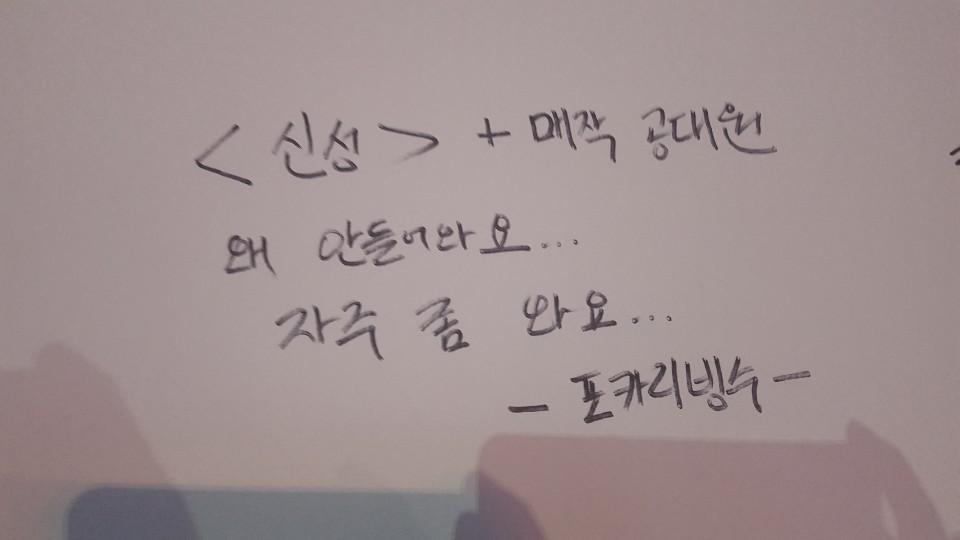 <신성> + 매작 공대원
왜 안들어와요...
자주 좀 와요...
- 포카리빙수 -